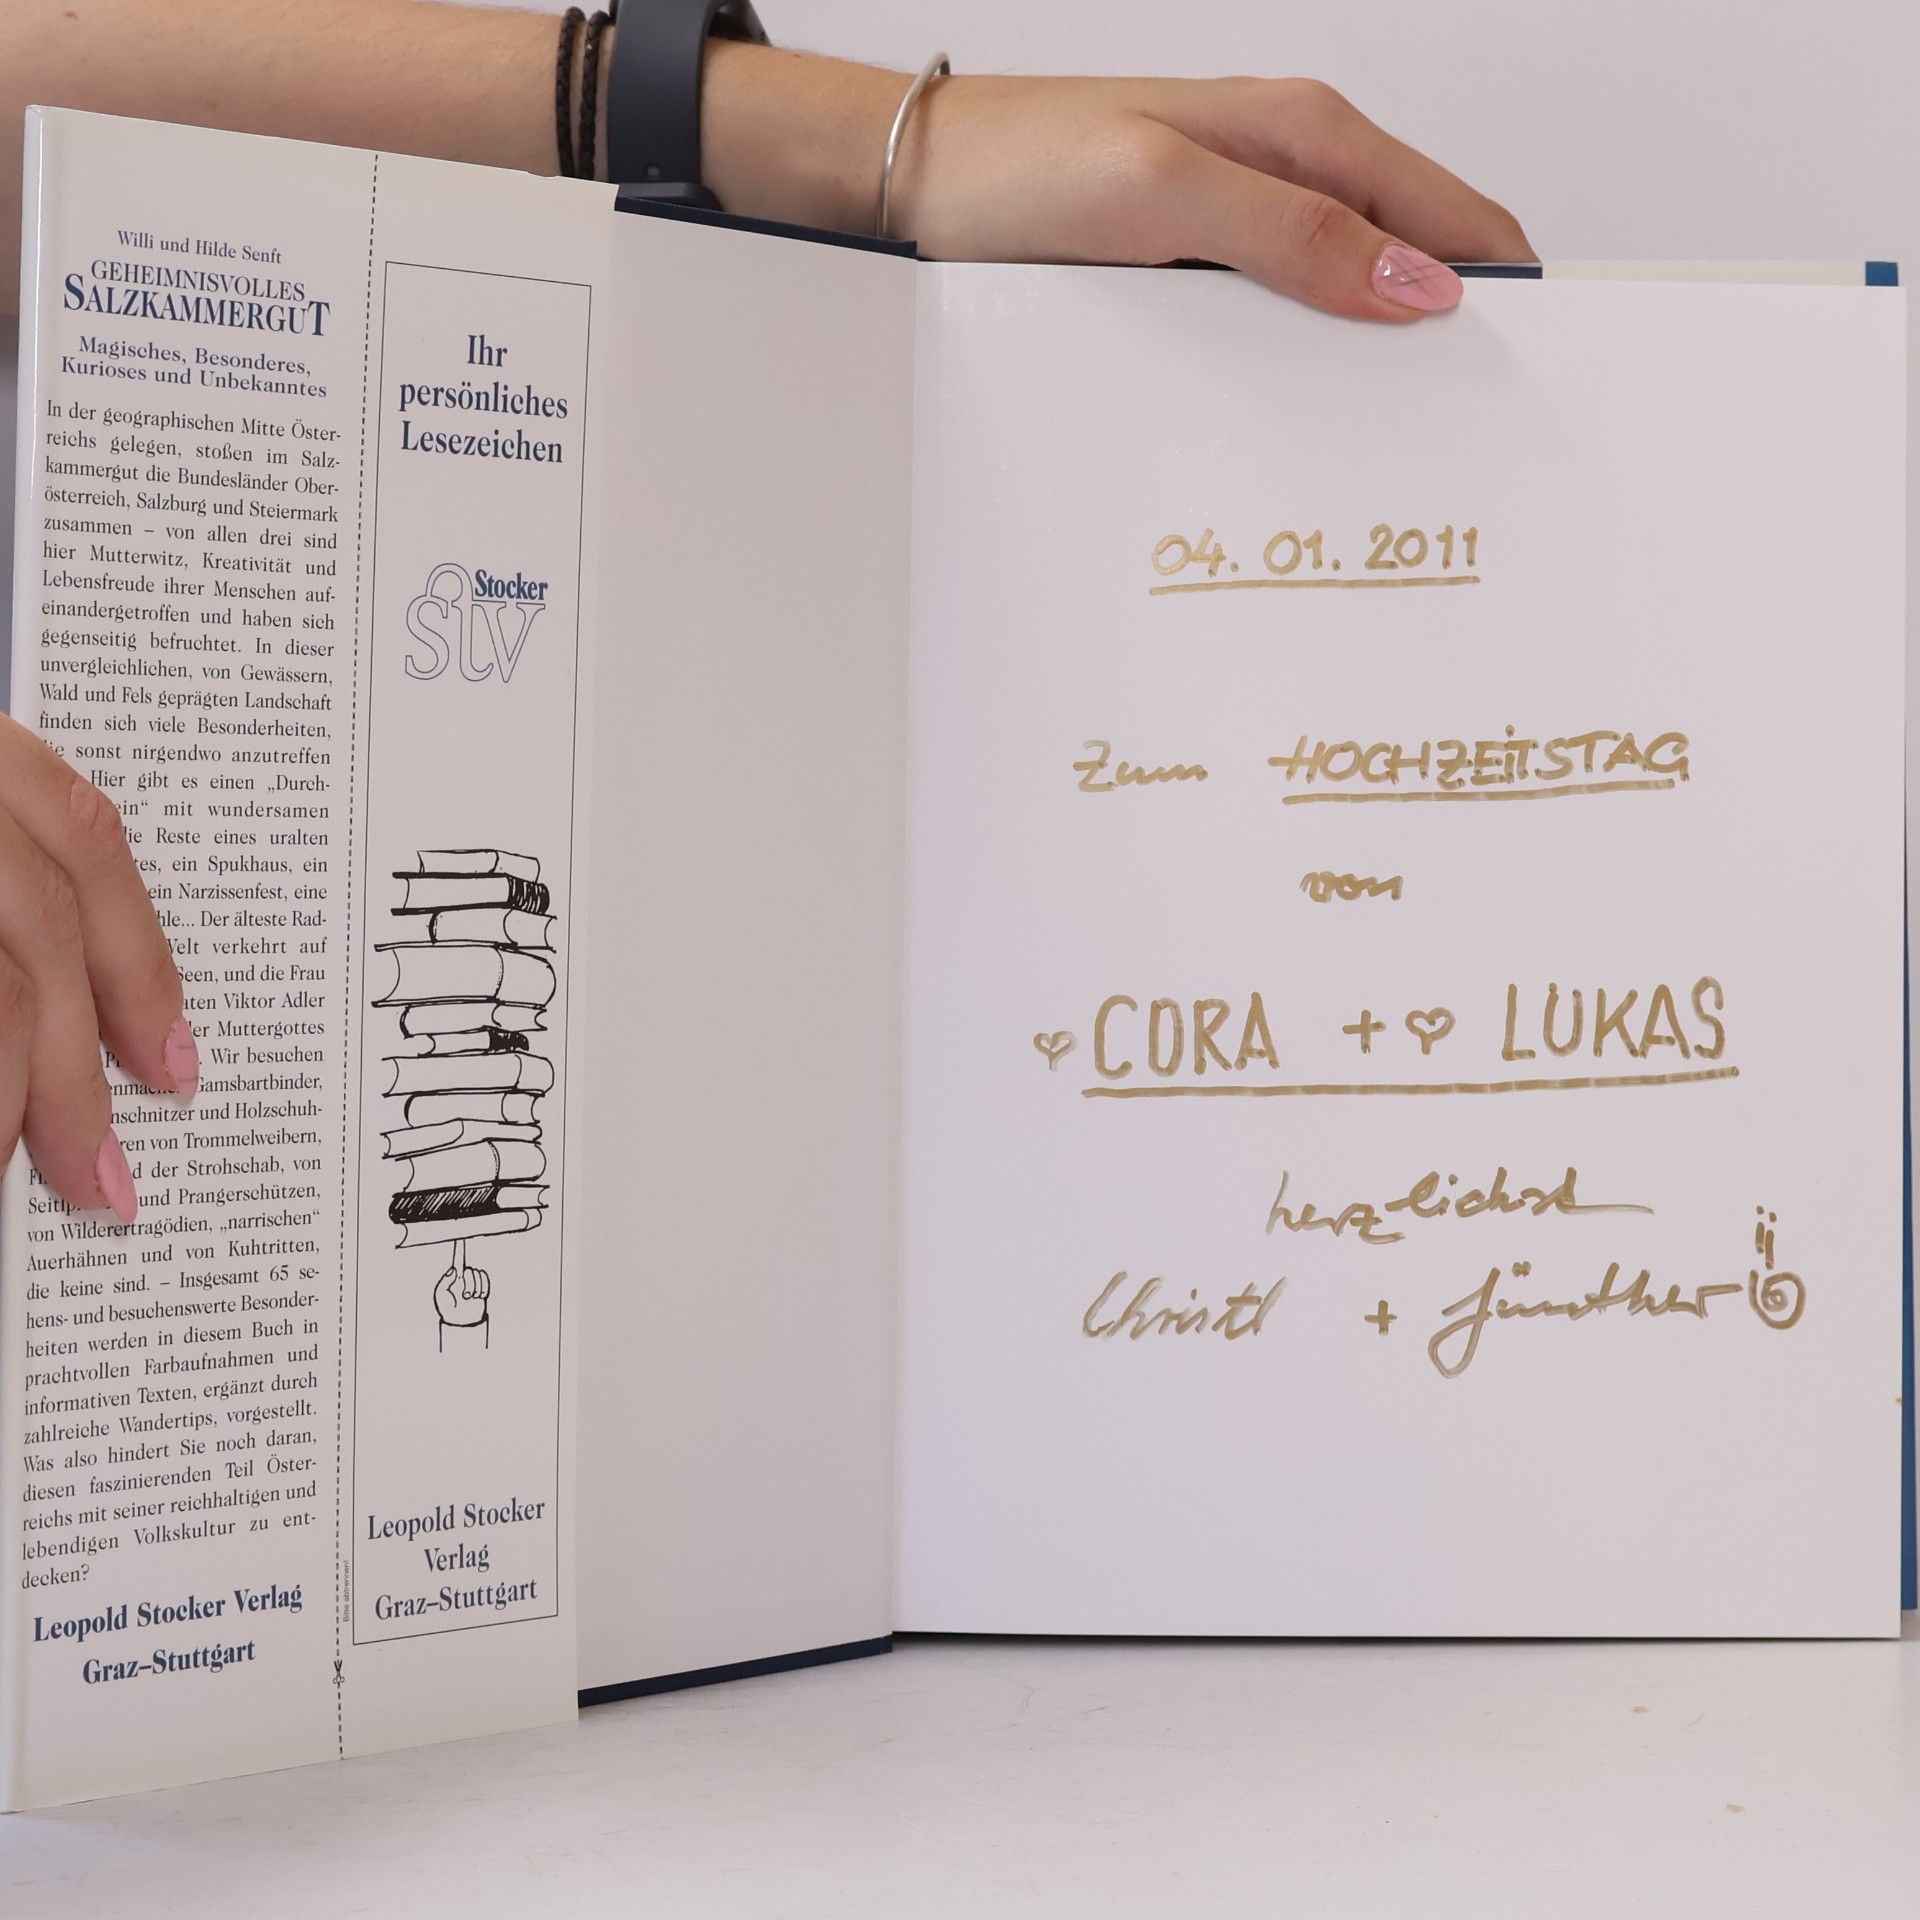 Willi und Hilde Senft
GEHEIMNISVOLLES
SALZKAMMERGUT
Magisches, Besonderes,
Kurioses und Unbekanntes
In der geographischen Mitte Öster-
reichs gelegen, stoßen im Salz-
kammergut die Bundesländer Ober-
österreich, Salzburg und Steiermark
zusammen – von allen drei sind
hier Mutterwitz, Kreativität und
Lebensfreude ihrer Menschen auf-
einandergetroffen und haben sich
gegenseitig befruchtet. In dieser
unvergleichlichen, von Gewässern,
Wald und Fels geprägten Landschaft
finden sich viele Besonderheiten,
sonst nirgendwo anzutreffen
Hier gibt es einen „Durch-
ein“ mit wundersamen
Reste eines uralten
ein Spukhaus, ein
ein Narzissenfest, eine
Der älteste Rad-
verkehrt auf
Seen, und die Frau
Viktor Adler
Muttergottes
Wir besuchen
Gamsbartbinder,
und Holzschuh-
von Trommelweibern,
der Strohschab, von
und Prangerschützen,
von Wilderertragödien, „narrischen“
Auerhähnen und von Kuhtritten,
die keine sind. – Insgesamt 65 se-
hens- und besuchenswerte Besonder-
heiten werden in diesem Buch in
prachtvollen Farbaufnahmen und
informativen Texten, ergänzt durch
zahlreiche Wandertips, vorgestellt.
Was also hindert Sie noch daran,
diesen faszinierenden Teil Öster-
reichs mit seiner reichhaltigen und
lebendigen Volkskultur zu ent-
decken?
Leopold Stocker Verlag
Graz–Stuttgart
Bitte abtrennen!
Ihr
persönliches
Lesezeichen
Stocker
Stv
Leopold Stocker
Verlag
Graz–Stuttgart
04. 01. 2011
Zum HOCHZEITSTAG
von
CORA + LUKAS
herzlichst
Christl + Günther